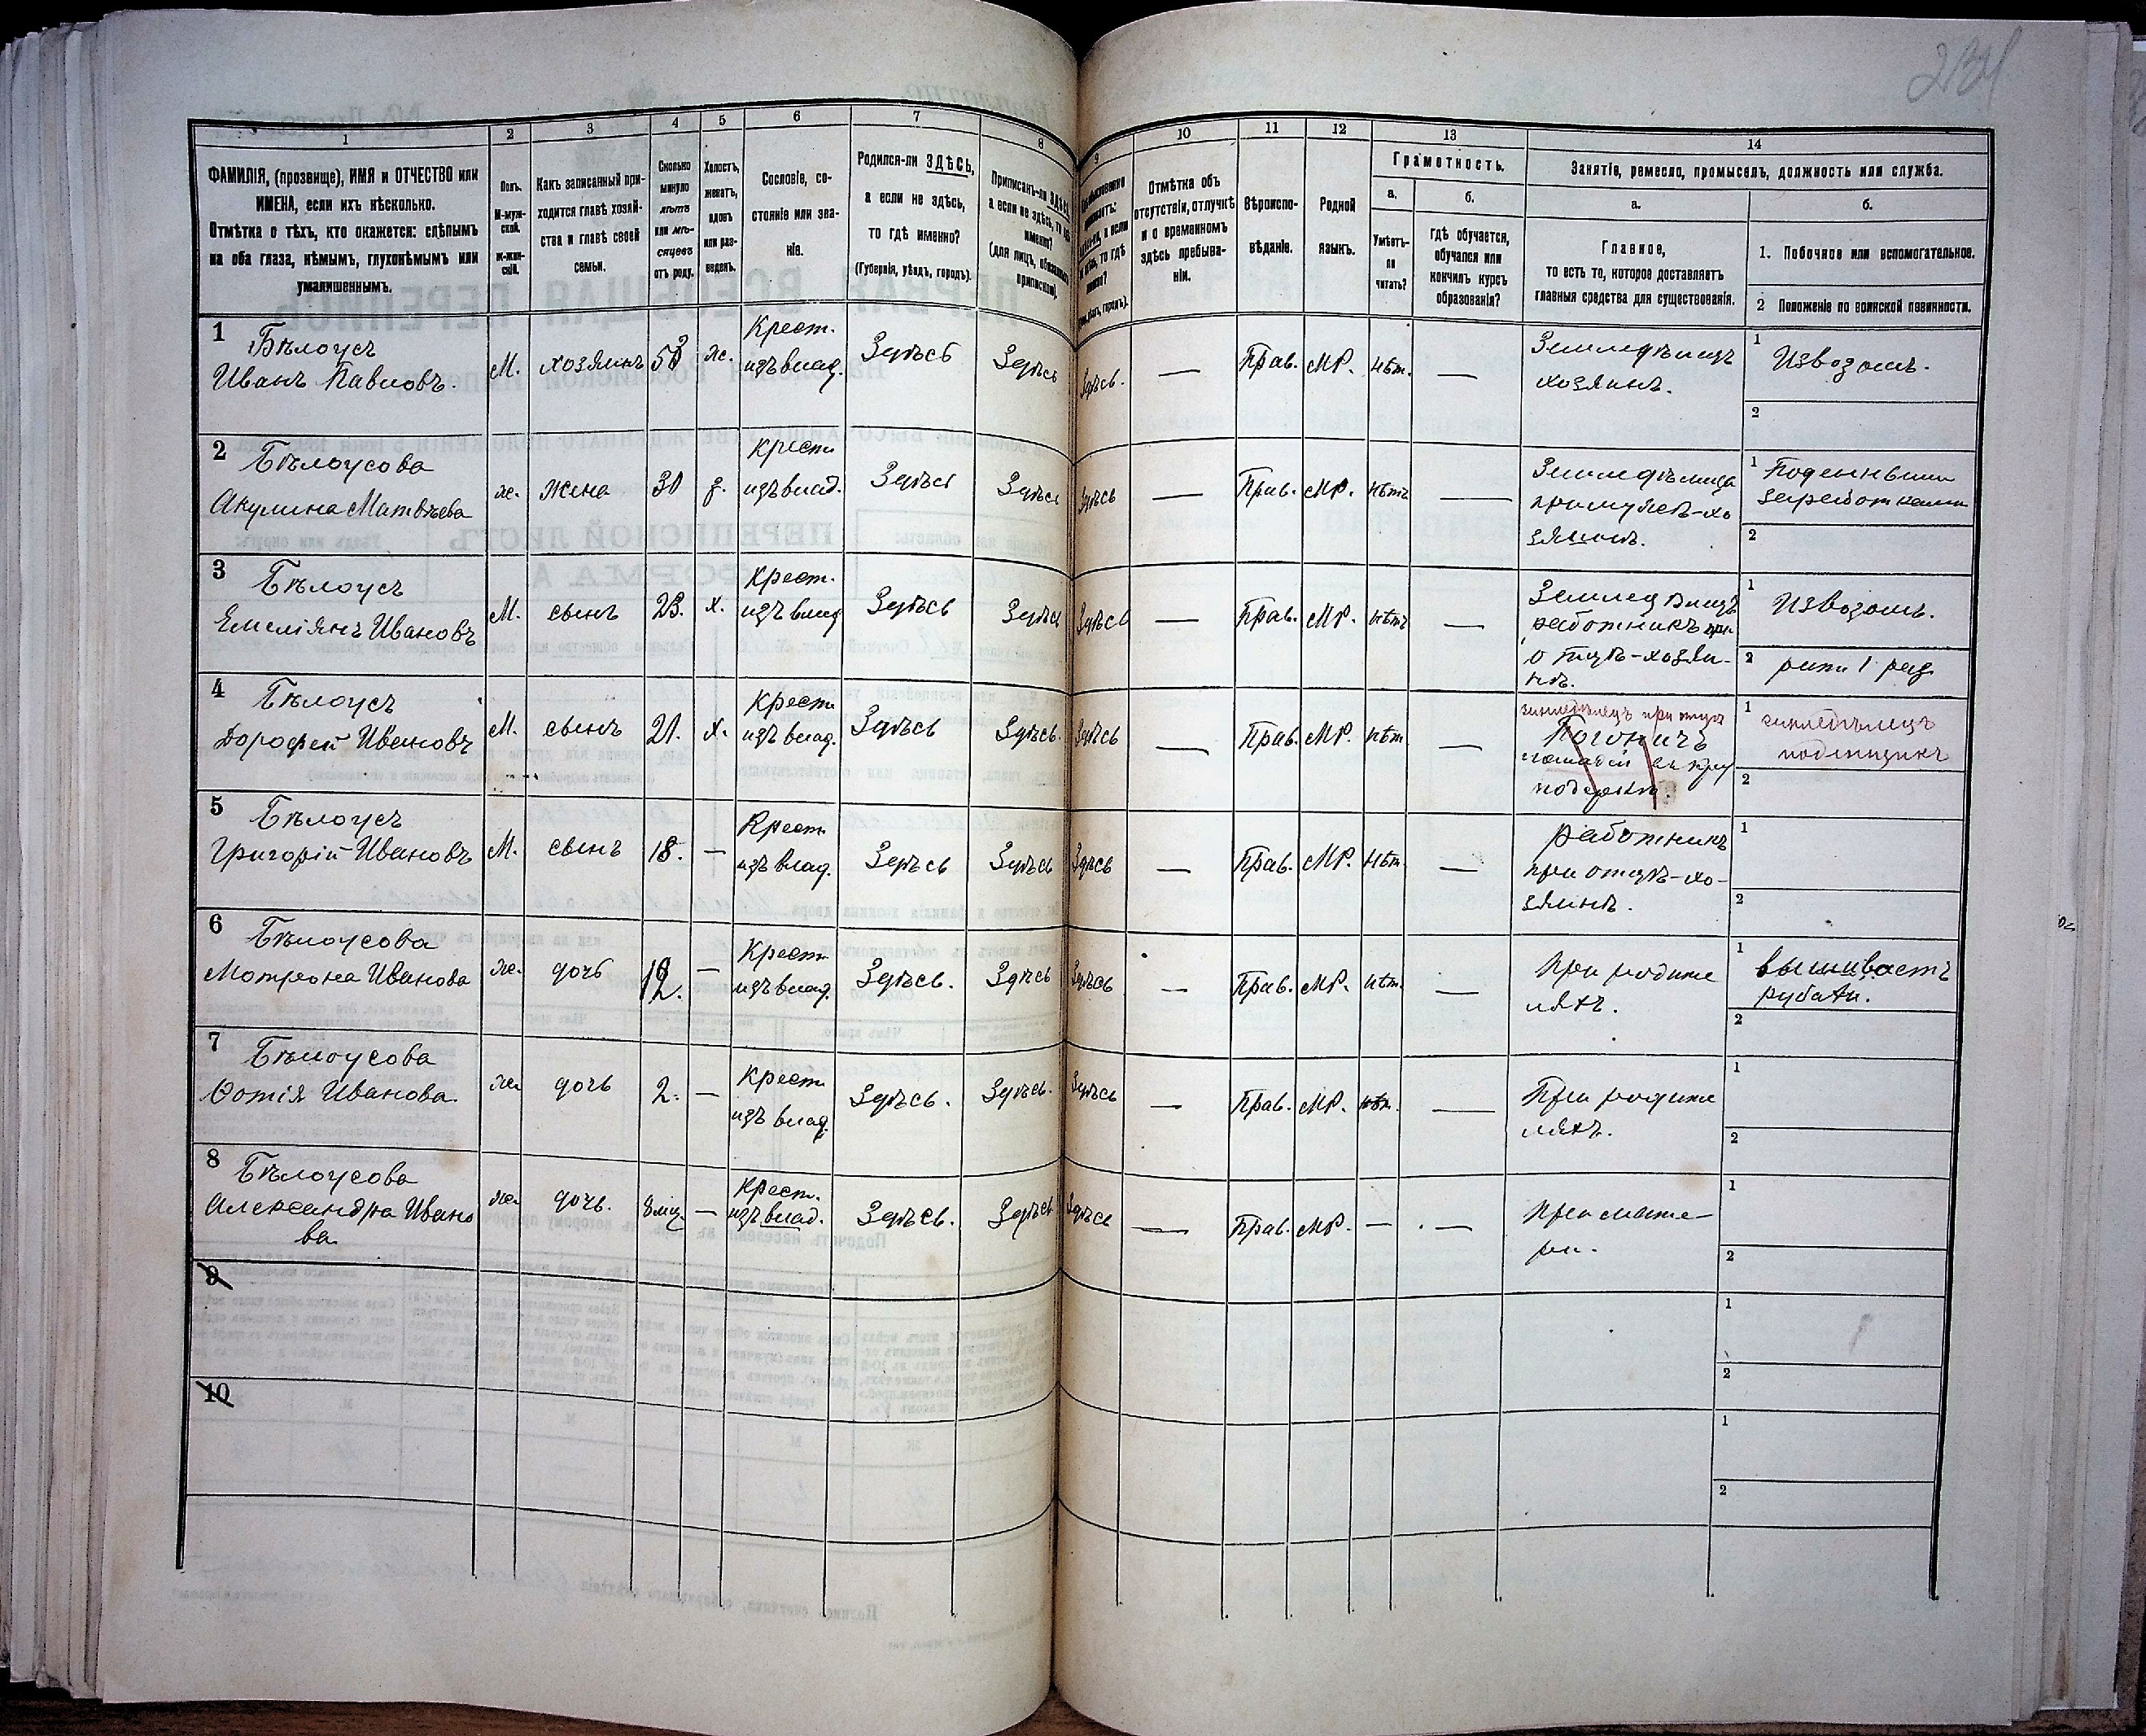 234
1 2 3 4 5 6 7 8 9 10 11 12 13 14
ФАМИЛІЯ, (прозвище), ИМЯ и ОТЧЕСТВО или
ИМЕНА, если ихъ нѣсколько.
Отмѣтка о тѣхъ, кто окажется: слѣпымъ
на оба глаза, нѣмымъ, глухонѣмымъ или
умалишеннымъ.
Полъ.
М-муж-
ской.
ж-жен-
скій.
Какъ записанный при-
ходится главѣ хозяй-
ства и главѣ своей
семьи.
Сколько
минуло
лѣтъ
или мѣ-
сяцевъ
отъ роду.
Холостъ,
женатъ,
вдовъ
или раз-
веденъ.
Сословіе, со-
стояніе или зва-
ніе.
Родился-ли ЗДѢСЬ,
а если не здѣсь,
то гдѣ именно?
(Губернія, уѣздъ, городъ).
Приписанъ-ли ЗДѢСЬ,
а если не здѣсь, то гдѣ
именно?
(для лицъ, обязанныхъ
припиской).
Отмѣтка объ
отсутствіи, отлучкѣ
и о временномъ
здѣсь пребыва-
ніи.
Вѣроиспо-
вѣданіе.
Родной
языкъ.
Грамотность.
а. б.
Умѣетъ-
ли
читать?
гдѣ обучается,
обучался или
кончилъ курсъ
образованія?
Занятіе, ремесло, промыселъ, должность или служба.
а. б.
Главное,
то есть то, которое доставляетъ
главныя средства для существованія.
1. Побочное или вспомогательное.
2 Положеніе по воинской повинности.
1 Бѣлоусъ
Иванъ Павловъ. М. хозяинъ ж. Крест.
изъ влад. Здѣсь Здѣсь Здѣсь. — Прав. МР. нѣт. — Земледѣлецъ
хозяинъ. 1 Извозомъ.
2
2 Бѣлоусова
Акулина Матвѣева ж. жена Крест.
изъ влад. Здѣсь Здѣсь Здѣсь — Прав. МР. нѣтъ — Земледѣлица
при мужѣ-хо
зяинѣ. 1 Поденными
заработками
2
3 Бѣлоусъ
Емеліянъ Ивановъ М. сынъ 23. х. Крест.
изъ влад Здѣсь Здѣсь Здѣсь — Прав. МР. нѣтъ — Земледѣлецъ
работникъ при
отцѣ-хозяи-
нѣ. 1 Извозомъ.
2 ратн 1 раз
4 Бѣлоусъ
Дорофей Ивановъ М. сынъ 21. х. Крест.
изъ влад. Здѣсь Здѣсь. Здѣсь — Прав. МР. нѣт. — земледѣлецъ при отцѣ
Погоничъ
1 земледѣлецъ
поденщикъ
2
5 Бѣлоусъ
Григорій Ивановъ М. сынъ 18. — Крест.
изъ влад. Здѣсь Здѣсь Здѣсь — Прав. МР. нѣт. — работникъ
при отцѣ-хо-
зяинѣ. 1
2
6 Бѣлоусова
Мотрона Иванова ж. дочь 12. — Крест.
изъ влад. Здѣсь. Здѣсь Здѣсь — Прав. МР. нѣт. — При родите
ляхъ. 1 вышиваетъ
рубахи.
2
7 Бѣлоусова
Фотія Иванова. ж. дочь 2. — Крест.
изъ влад. Здѣсь. Здѣсь. Здѣсь — Прав. МР. нѣт. — При родите
ляхъ. 1
2
8 Бѣлоусова
Александра Ивано
ва ж. дочь. 8 мц. — Крест.
изъ влад. Здѣсь. Здѣсь Здѣсь — Прав. МР. — — При мате-
ри. 1
2
9 1
2
10 1
2